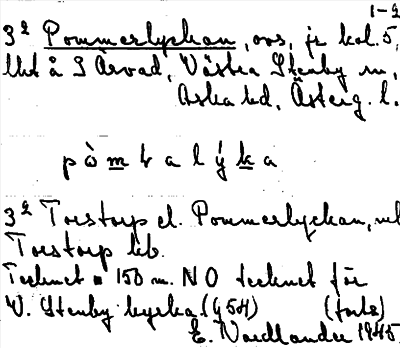 1-2
3² Pommerlyckan, avs, je kol. 5,
lht å S Arvad, Västra Stenby sn,
Aska hd, Österg. l.
p ò m ə a l ý k a
3² Torstorp el. Pommerlyckan, vid
Torstorp
Tecknet ▪ 150 m. NO tecknet för
V. Stenby kyrka. (G54) (forts)
E. Nordlander 1945